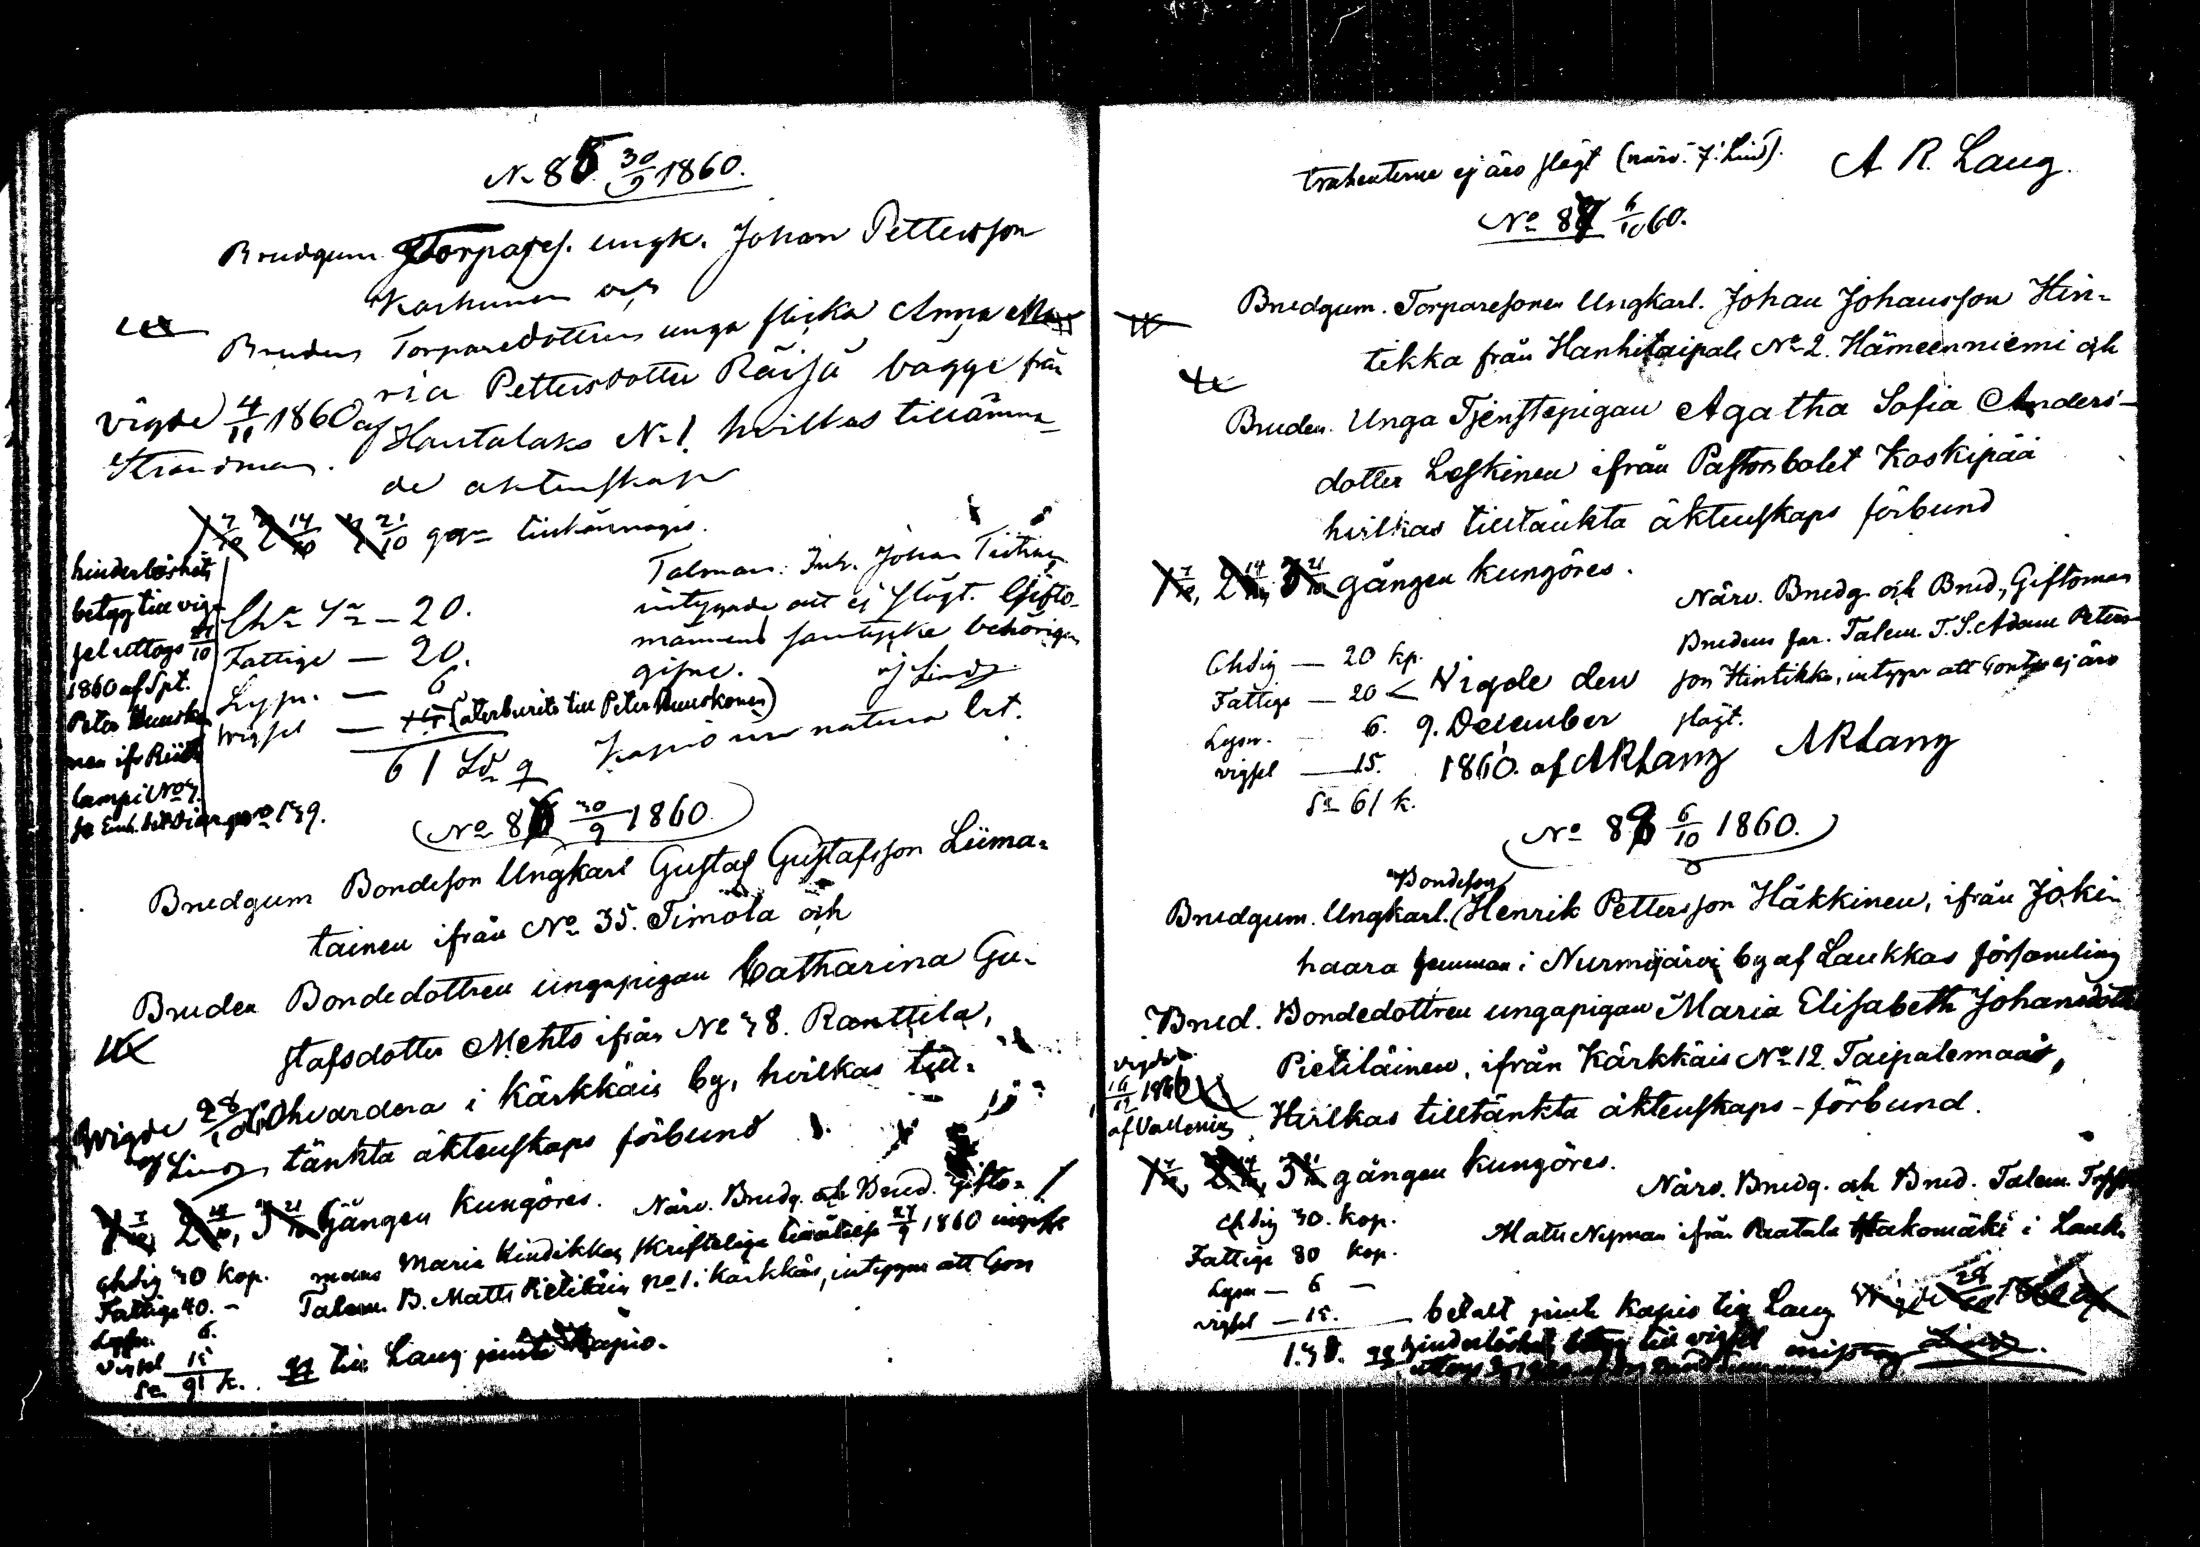 No 85 30/9 1860.
Brudgum Torpares. ungk. Johan Pettersson
Karhunen och
Bruden Torparedottren unga flicka Anna Ma
ria Pettersdotter Räisä bägge från
vigde 4/11 1860 af
Hautalaks No 1. hvilkas tillämna
Strandman.
de äktenskap
1 7/10 2 14/10 3 21/10 ggn tillkännagis.
hinderlöshets
betyg till vig
sel uttogs 27/10
1860 af Spt.
Peter
lampi No 7.
Chn Sn — 20.
Fattige — 20.
Lysn. — 6
Vigsel — 15 (återburits till Peter Kuuskonen)
61
Talman: Inh. Johan
intygade att ej slägt. Gifto-
mannens samtycke behörigen
gifne. af Lind
Kapio in natura lvt.
No 86 30/9 1860
Brudgum Bondeson Ungkarl Gustaf Gustafsson Liima-
tainen ifrån No 35. Timola och
Bruden Bondedottren ungapigan Catharina Gu-
stafsdotter Mehto ifrån No 38. Ranttila,
Ohvardera i Kärkkäis by, hvilkas till-
Wigde 28/10 60
af Lind
tänkta äktenskaps förbund
1 7/10, 2 14/10, 3 21/10 Gången kungöres. Närv. Brudg. och Brud. Gifto-
mans Maria Hindikkas skriftelige tillåtelse 27/9 1860
Talem. B. Matts Pietiläin No 1. Kärkkäis, intygar att Con
Chdig 30 kop.
Fattige 40. -
Lysn. 6.
Vigsel 15
Sa 91 k.
till Lang
trahenterne ej äro slägt (närv. J. Lind). A R. Lang.
No 87 6/10 60.
Brudgum. Torparesonen Ungkarl. Johan Johansson Hin-
tikka från Hanhitaipale No 2. Hämeenniemi och
Bruden. Unga Tjenstepigan Agatha Sofia Anders-
dotter Leskinen ifrån Pastorsbolet Koskipää
hvilkas tilltänkta äktenskaps förbund
1 7/10, 2 14/10, 3 21/10 gången kungöres.
Närv. Brudg. och Brud, Giftoman
Brudens far. Talem. T. S. Adam Peters-
son Hintikka, intygar att Contr ej äro
slägt.
ARLang
Chdig — 20 kp.
Fattige — 20
Lysn. — 6.
vigsel — 15.
Sa 61 k.
Vigde den
9. December
1860. af ARLang
No 88 6/10 1860.
Bondeson
Brudgum. Ungkarl. Henrik Pettersson Häkkinen, ifrån Joki-
haara hemman i Nurmijärvi by af Laukkas församling
Brud. Bondedottren ungapigan Maria Elisabeth Johansdotter
Pietiläinen, ifrån Kärkkäis No 12. Taipalemaa,
Hvilkas tilltänkta äktenskaps-förbund.
vigde
16/12 1860
af
1 7/10, 2 14/10, 3 21/10 gången kungöres.
Närv. Brudg. och Brud. Talem.
Matts Nyman ifrån Raatala Hakomäki i Lauk.
Chdig 30. kop.
Fattige 80 kop.
Lysn — 6 —
vigsel — 15.
betalt till Lang
hinderlöshets betyg till vigsel